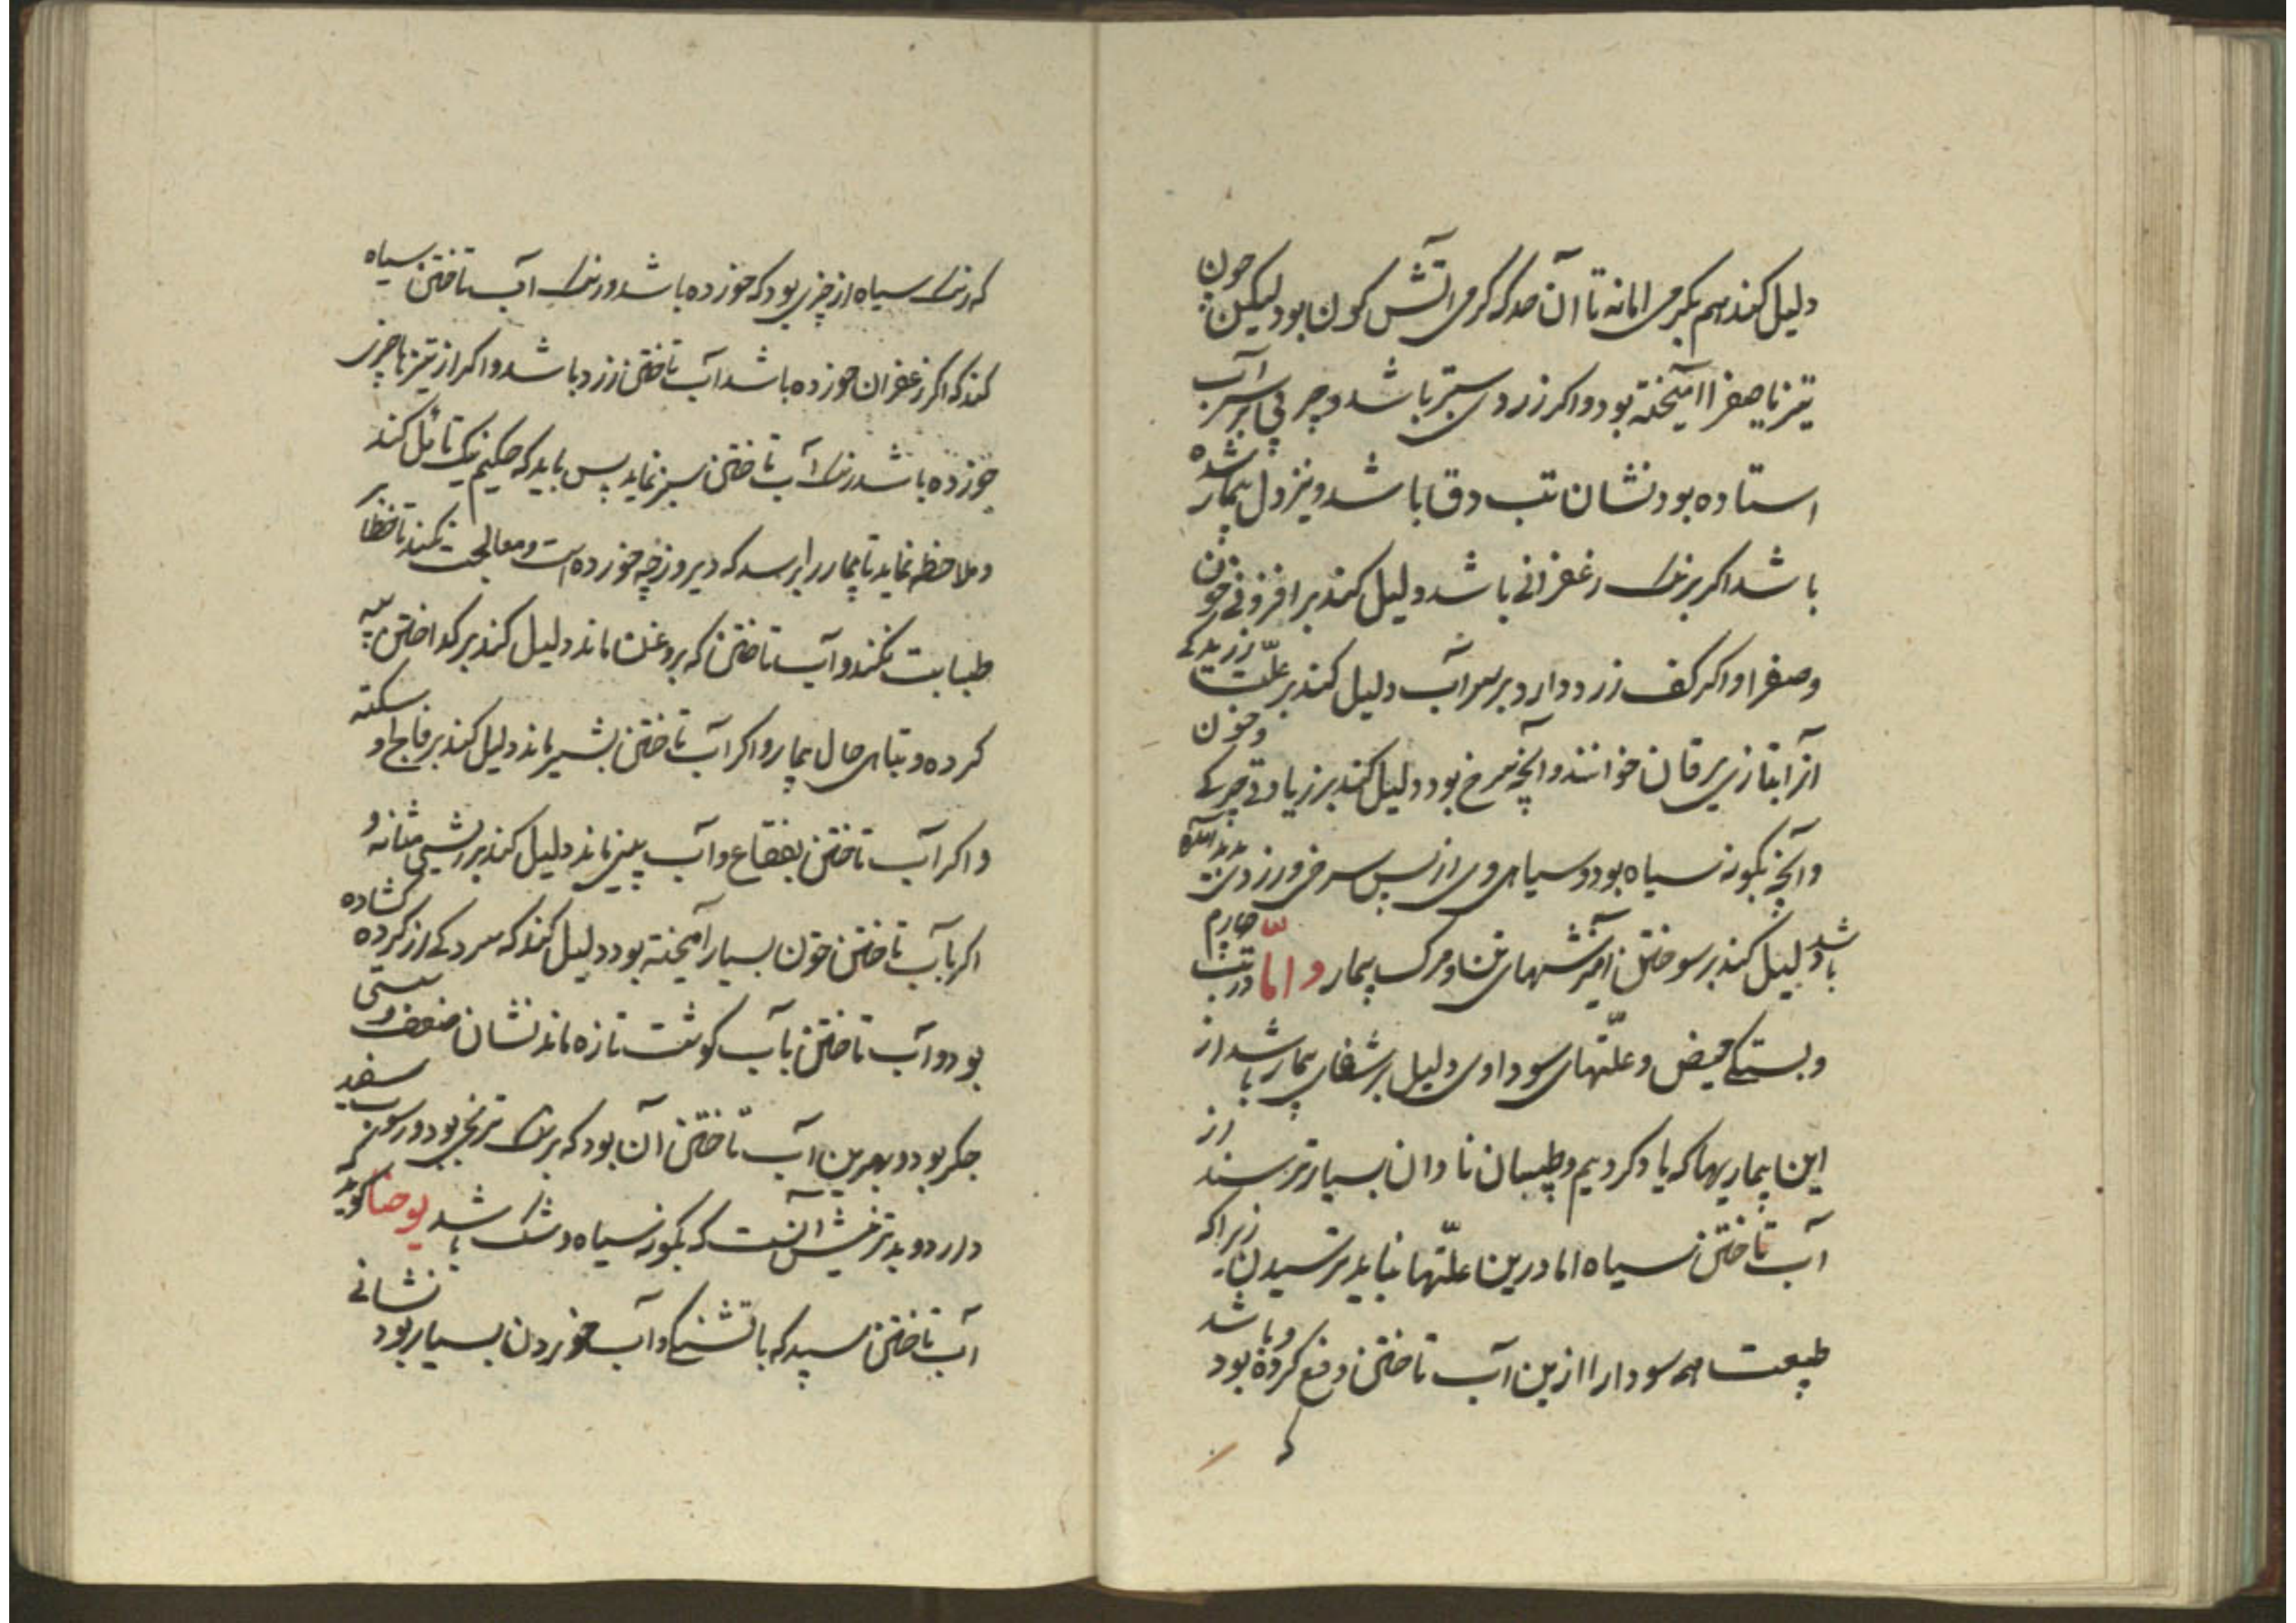 دلیل کند هم بکرمی اما نه تا آن حد که کرمی آتش کون بود لیکن چون
تیزنا صفرا آمیخته بود و اکر زردی ستبر باشد و چربی بر سر آب
استاده بود نشان تب دق باشد و نیز دل بیمار شده
باشد اکر برنک زعفرانی باشد دلیل کند بر افزونی خون
و صفرا و اکر کف زرد دارد بر سر آب دلیل کند بر علت زریدکی
آنرا بتازی یرقان خوانند و آنچه سرخ بود دلیل کند بر زیادتی چربکی و خون
و آنچه بکونه سیاه بود و سیاهی وی از پس سرخی و زردی پدید آمده
باشد دلیل کند بر سوختن آمیزشهای تن و مرک بیمار و امّا در تب چهارم
و بستکی حیض و علّتهای سوداوی دلیل بر شفای بیمار باشد از
این بیماریها که یاد کردیم و طبیبان نادان بسیار ترسند از
آب تاختن سیاه اما درین علّتها نباید ترسیدن زیرا که
طبیعت همه سودا را ازین آب تاختن دفع کرده بود و باشد
که
که رنک سیاه از چیزی بود که خورده باشد و رنک آب تاختن سیاه
کند که اکر زعفران خورده باشد آب تاختن زرد باشد و اکر از تیزیها چیزی
خورده باشد رنک آب تاختن سبز نماید پس باید که حکیم نیک تأمّل کند
و ملاحظه نماید تا بیمار را بپرسد که دیروز چه خورده است و معالجت نکند تا خطا بر
طبابت نکند و آب تاختن که بروغن ماند دلیل کند بر کداختن پیه
کرده و تباهی حال بیمار و اکر آب تاختن بشیر ماند دلیل کند بر فالج و سکته
و اکر آب تاختن بفقاع و آب پنیر ماند دلیل کند بر ریشی مثانه و
اکر با آب تاختن خون بسیار آمیخته بود دلیل کند که سر رکی از کرده کشاده
بود و آب تاختن بآب کوشت تازه ماند نشان ضعف و سستی
جکر بود و بهترین آب تاختن آن بود که برنک ترنجی بود و رسوب سفید
دارد و بدترینش آنست که بکونه سیاه و تنک باشد یوحنا کوید که
آب تاختن سپید که با تشنکی و آب خوردن بسیار بود نشانی